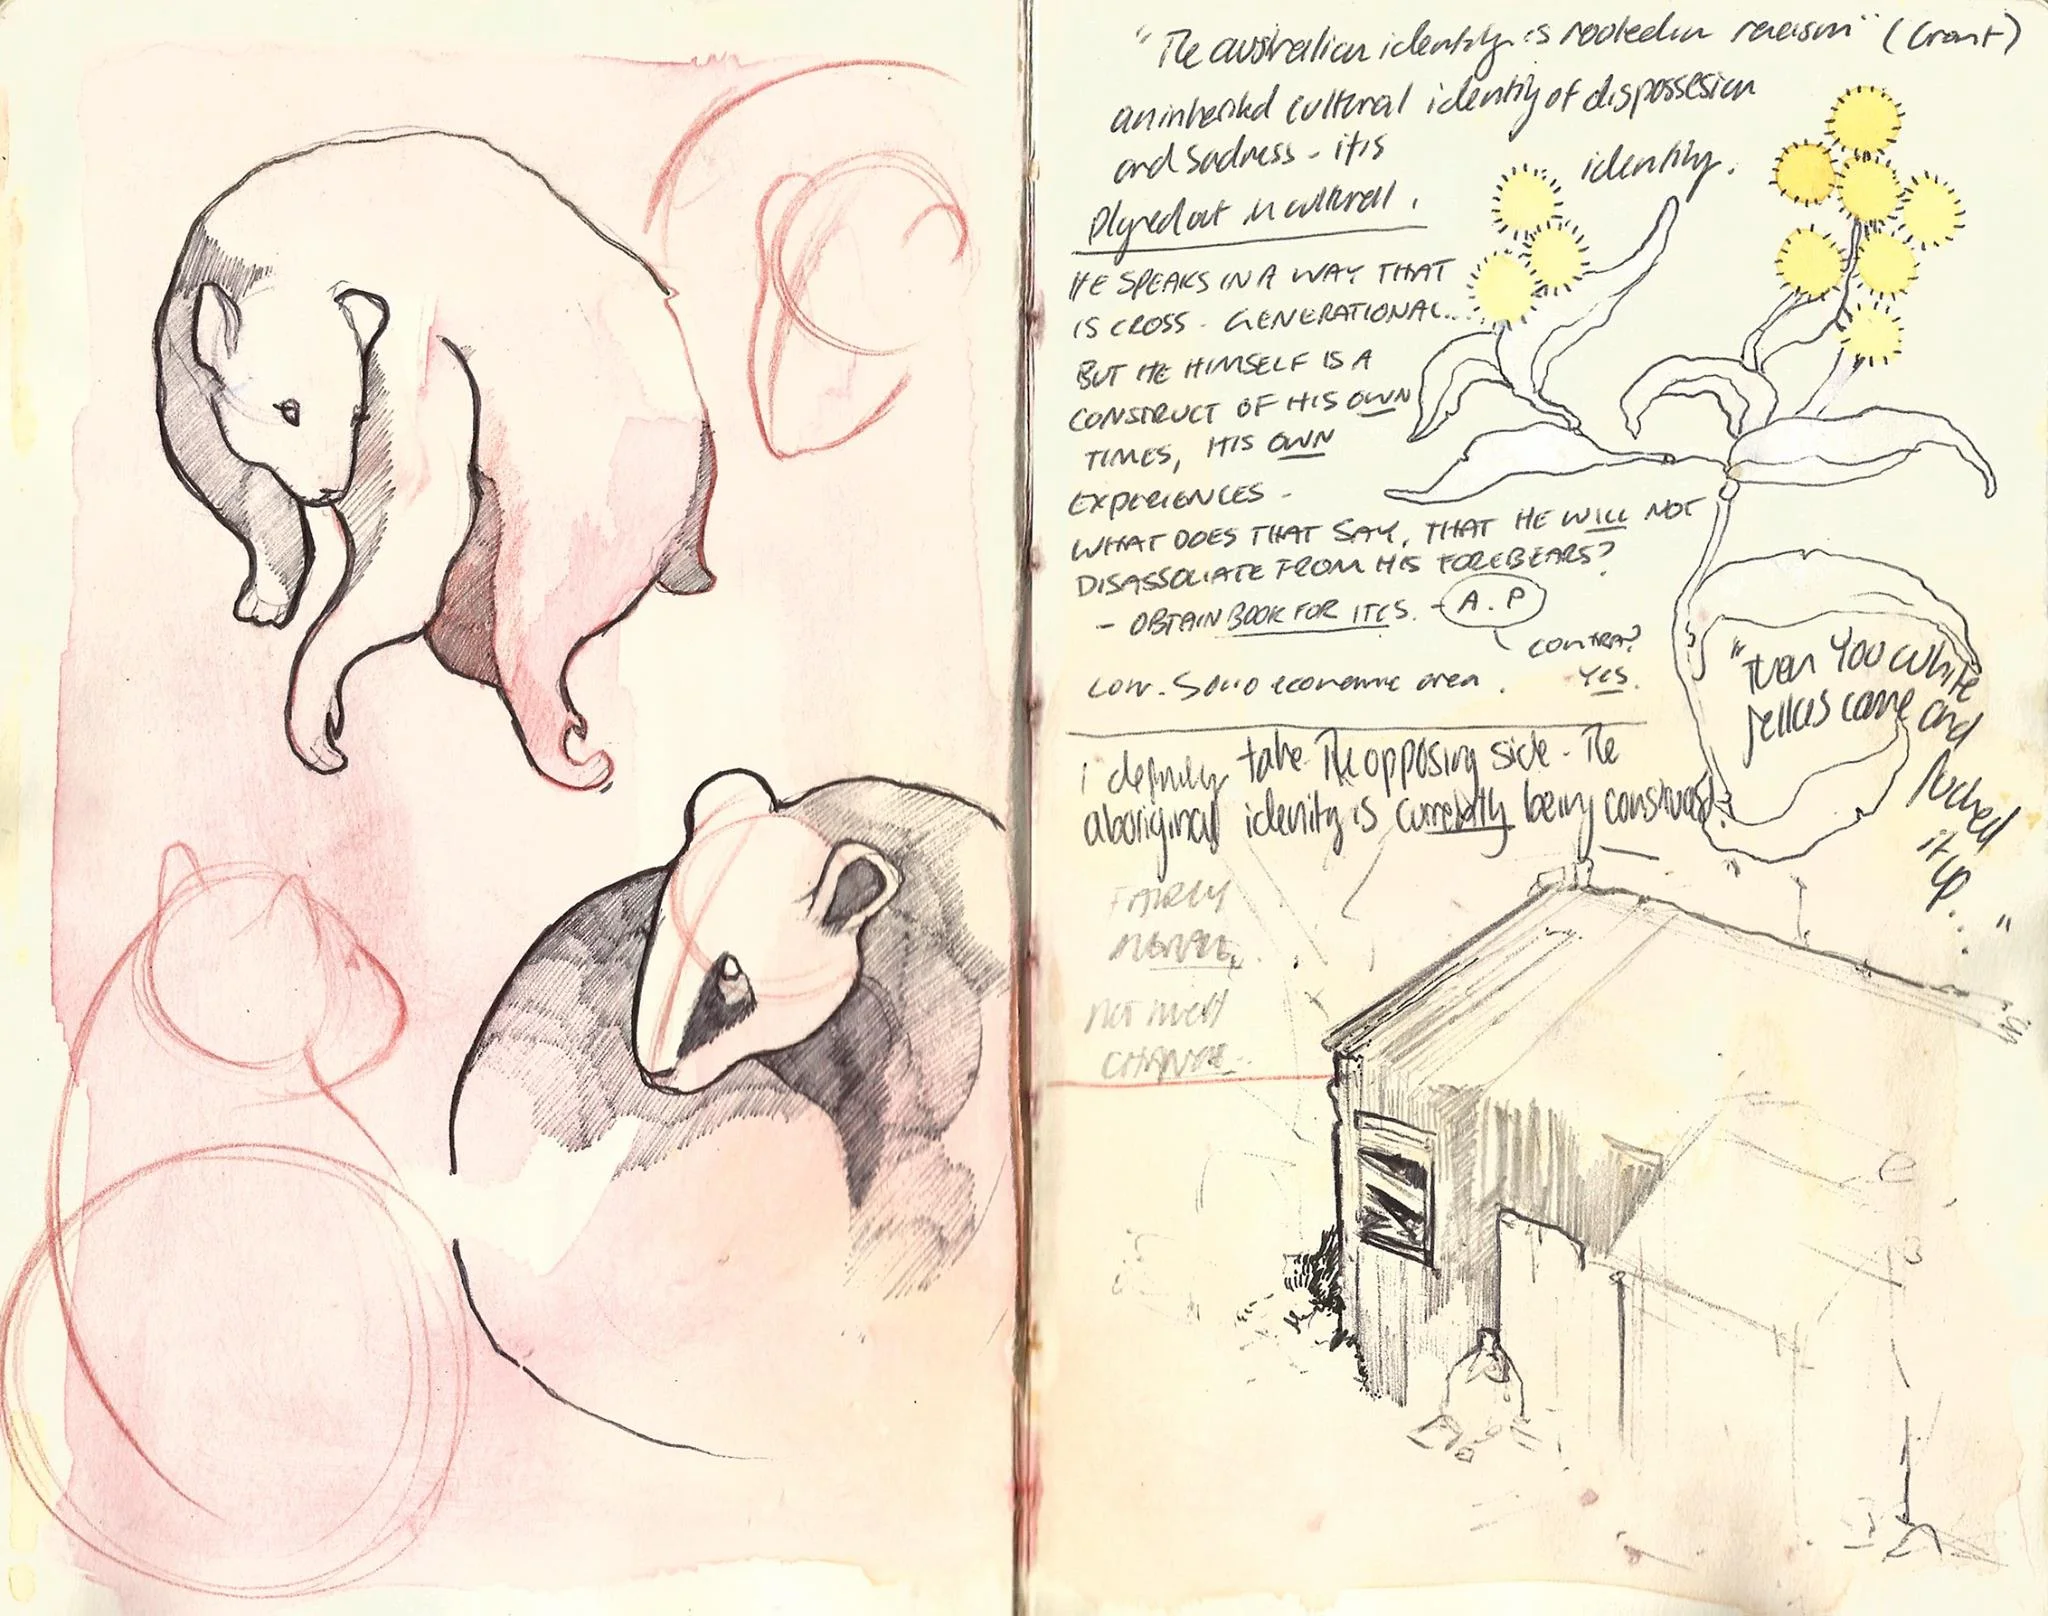 "The australian identity is rooted in racism" (Grant)
an inherited cultural identity of dispossesion
and sadness - it is
identity.
played out in culturall.
HE SPEAKS IN A WAY THAT
IS CROSS - GENERATIONAL...
BUT HE HIMSELF IS A
CONSTRUCT OF HIS OWN
TIMES, HIS OWN
EXPERIENCES -
WHAT DOES THAT SAY, THAT HE WILL NOT
DISASSOCIATE FROM HIS FOREBEARS?
- OBTAIN BOOK FOR ITCS. - A.P
CONTRA?
YES.
Low. Socio economic area.
i definitely take the opposing side - The
aboriginal identity is currently being construed.
"Then YOU white
fellas came
and
fucked
it up..."
FAIRLY
NOT MUCH
CHANGE..